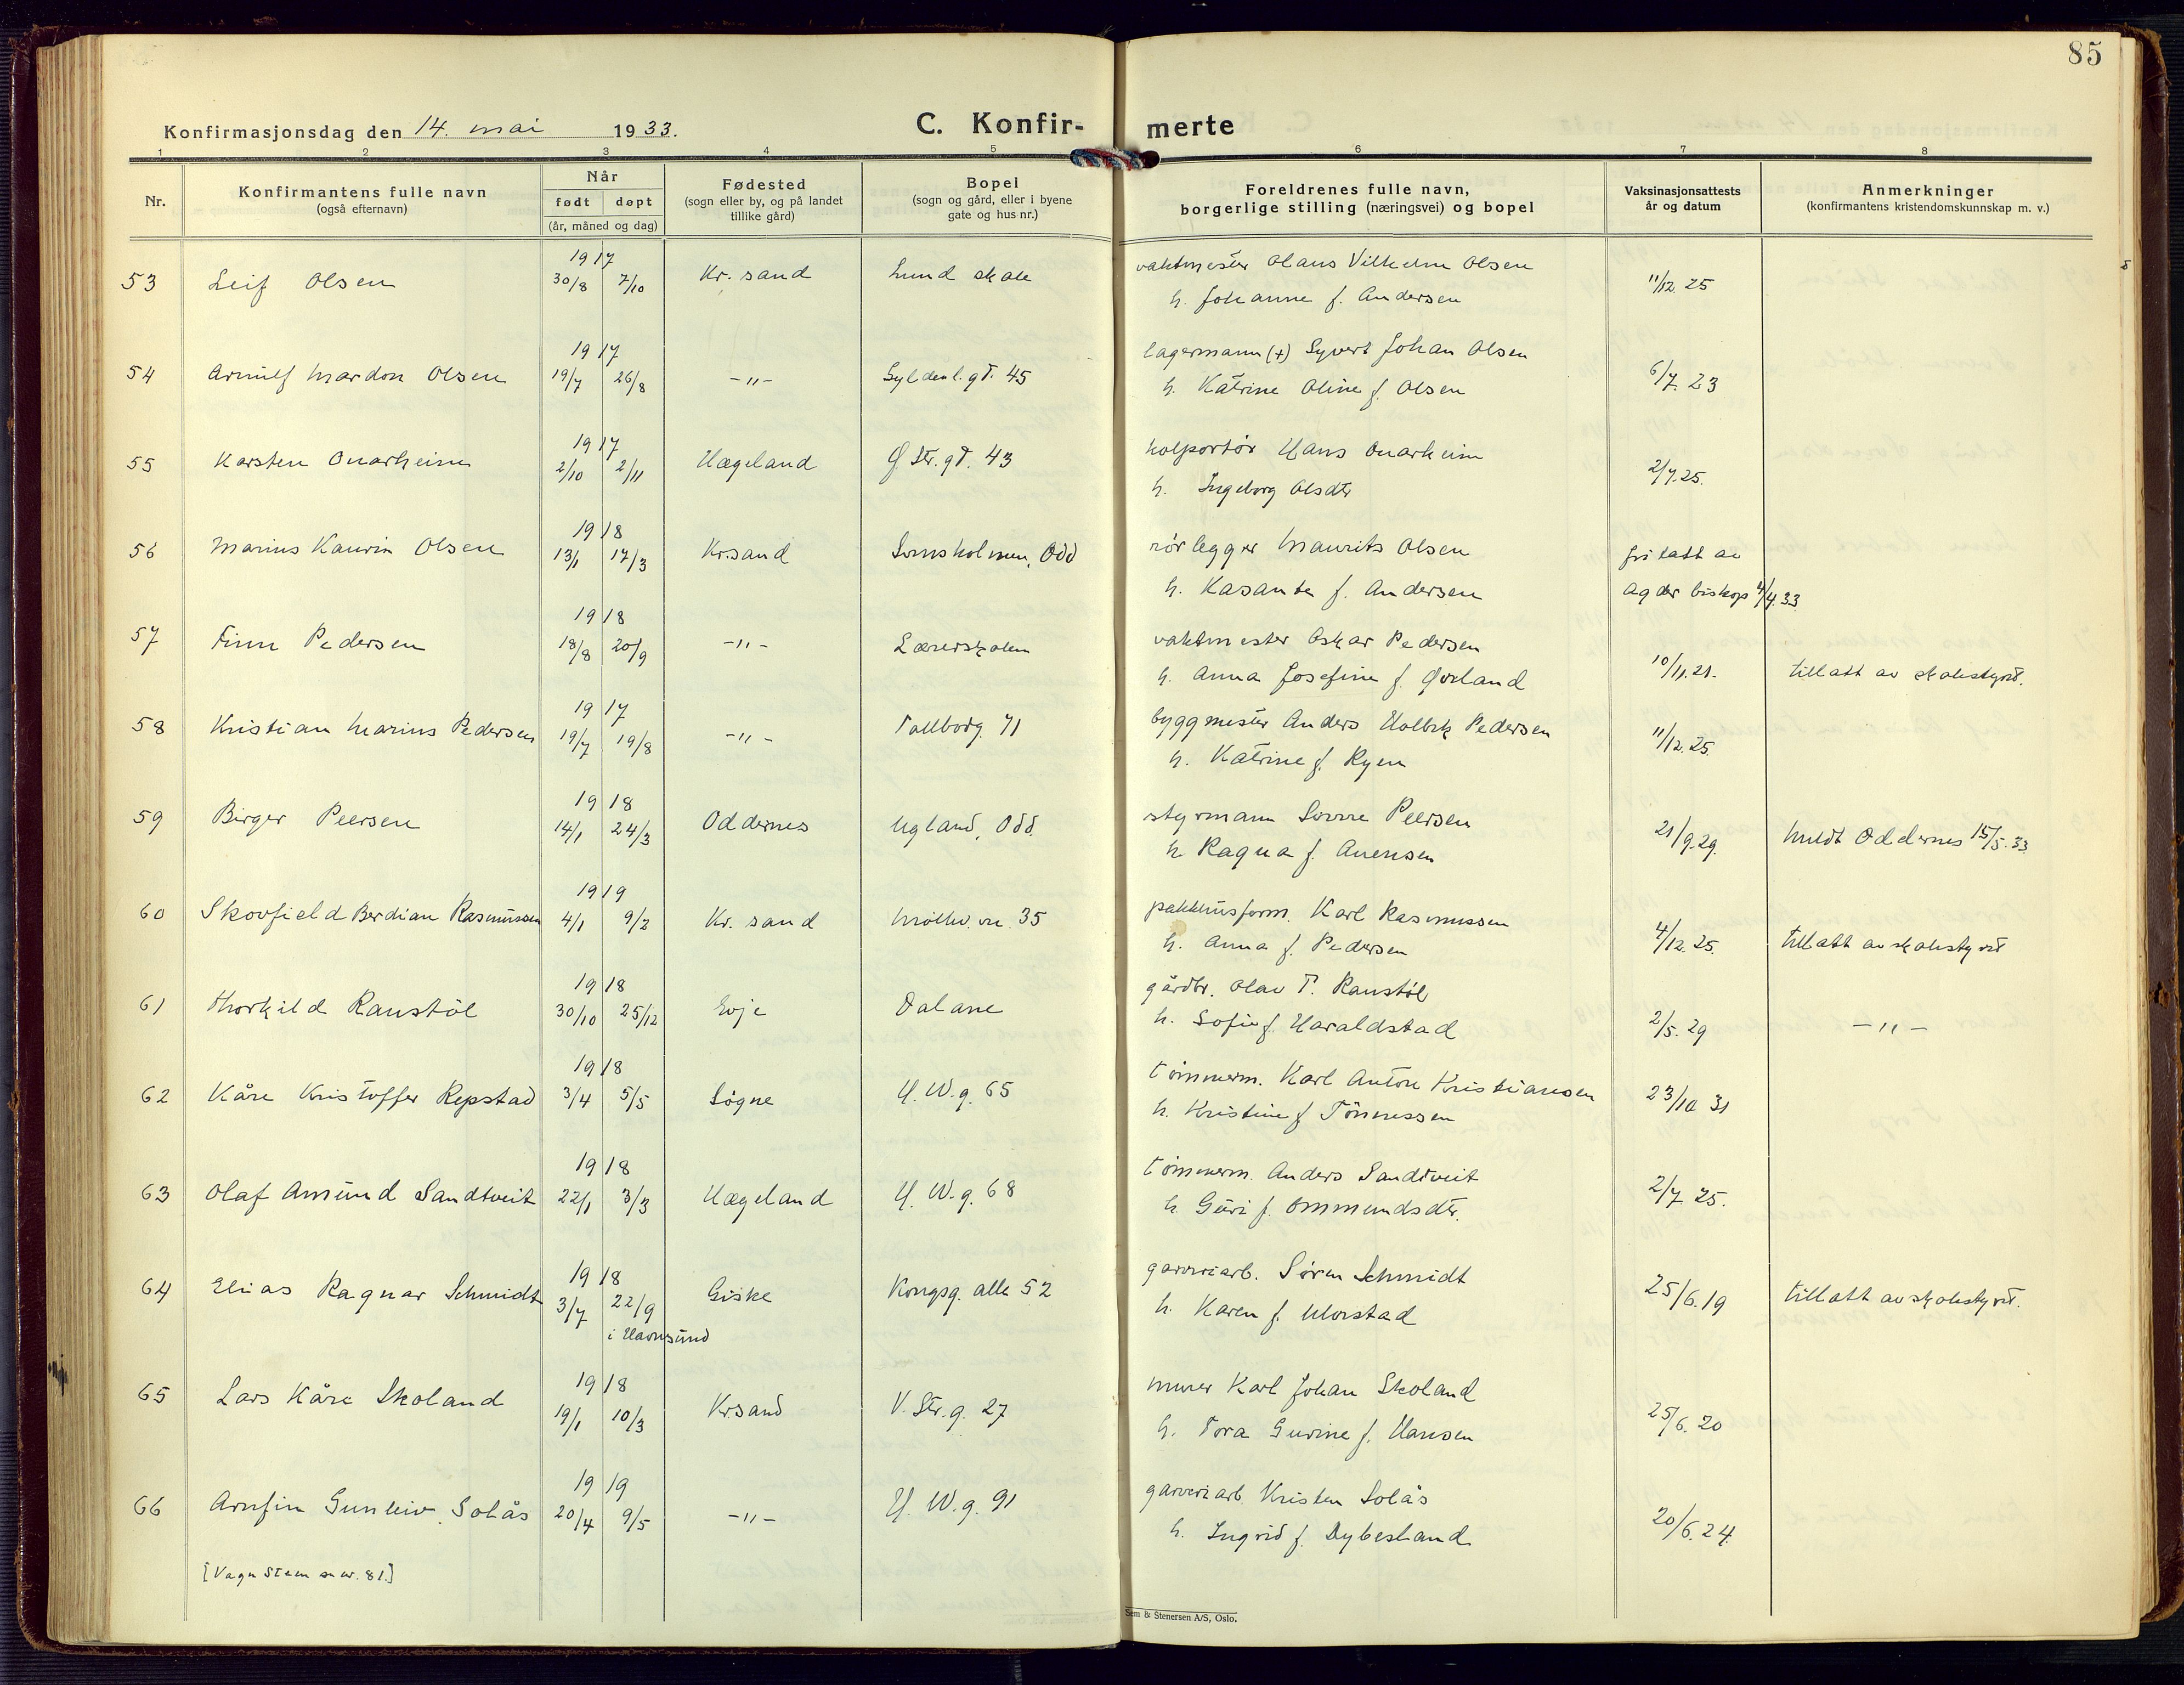 85
Konfirmasjonsdag den 14. mai 1933. C. Konfir- merte
1 2 3 4 5 6 7 8
Nr. Konfirmantens fulle navn (også efternavn) Når født døpt (år, måned og dag) Fødested (sogn eller by, og på landet tillike gård) Bopel (sogn og gård, eller i byene gate og hus nr.) Foreldrenes fulle navn, borgerlige stilling (næringsvei) og bopel Vaksinasjonsattests år og datum Anmerkninger (konfirmantens kristendomskunnskap m. v.)
1917 vaktmester Olaus Vilhelm Olsen
53 Leif Olsen 30/8 7/10 Kr. sand Lund skole 11/12. 25
h. Johanne f. Andersen
1917 lagermann (+) Syvert Johan Olsen
54 Arnulf Mardon Olsen 19/7 26/8 -"- Gyldenl. gt. 45 6/7. 23
h. Katrine Oline f. Olsen
1917 kolportør Hans Onarheim
55 Karsten Onarheim 2/10 2/11 Hægeland Ø Str. gt. 43 2/7. 25.
h. Ingeborg Olsdtr
1918 rørlegger Maurits Olsen fritatt av
56 Marius Kaurin Olsen 13/1 17/3 Kr.sand Odd
h. Kasante f. Andersen Agder biskop 4/4. 33
1918
57 Finn Pedersen 18/8 20/9 -"- Lærerskolen vaktmester Oskar Pedersen
h. Anna Josefine f. Øvland 10/11. 21. tillatt av skolestyret.
1917 byggmester Anders Holbek Pedersen
58 Kristian Marius Pedersen 19/7 19/8 -"- Tollbodg. 71 11/12. 25.
h. Katrine f. Ryen
1918 styrmann Sverre Peersen
59 Birger Peersen 14/1 24/3 Oddernes Ugland, Odd. 21/9. 29. meldt Oddernes 15/5. 33.
h. Ragna f. Auensen
1919 pakkhusform. Karl Rasmussen
60 Skovfield Berdian Rasmussen 4/1 9/2 Kr. sand Møllev. vn. 35
h. Anna f. Pedersen 4/12. 25. tillatt av skolestyret
1918 gårdbr. Olav T. Raustøl
61 Thorkild Raustøl 30/10 25/12 Evje Dalane
h. Sofie f. Haraldstad 2/5. 29 -"-
1918 tømmerm. Karl Anton Kristiansen
62 Kåre Kristoffer Repstad 3/4 5/5 Søgne H. W. g. 65 23/10 31
h. Kristine f Tønnessen
1918 tømmerm. Anders Sandtveit
63 Olaf Amund Sandtveit 22/1 3/3 Hægeland H. W. g. 68 2/7 25.
h. Guri f. Ommundsdtr.
1918 garveriarb. Søren Schmidt
64 Elias Ragnar Schmidt 3/7 22/9 Giske Kongsg. alle 52 25/6. 19 tillatt av skolestyret.
i Havnsund h. Karen f. Morstad
1918 murer Karl Johan Skoland
65 Lars Kåre Skoland 19/1 10/3 Kr.sand V. Str. g. 27 25/6. 20
h. Tora Gurine f. Hansen
1919 garveriarb. Kristen Solås
66 Arnfin Gunleiv Solås 20/4 9/5 -"- H. W. g. 91
h. Ingrid f. Dybesland 20/6. 24.
[Vagn Steen se nr. 81.]
Sem & Stenersen A/S, Oslo.